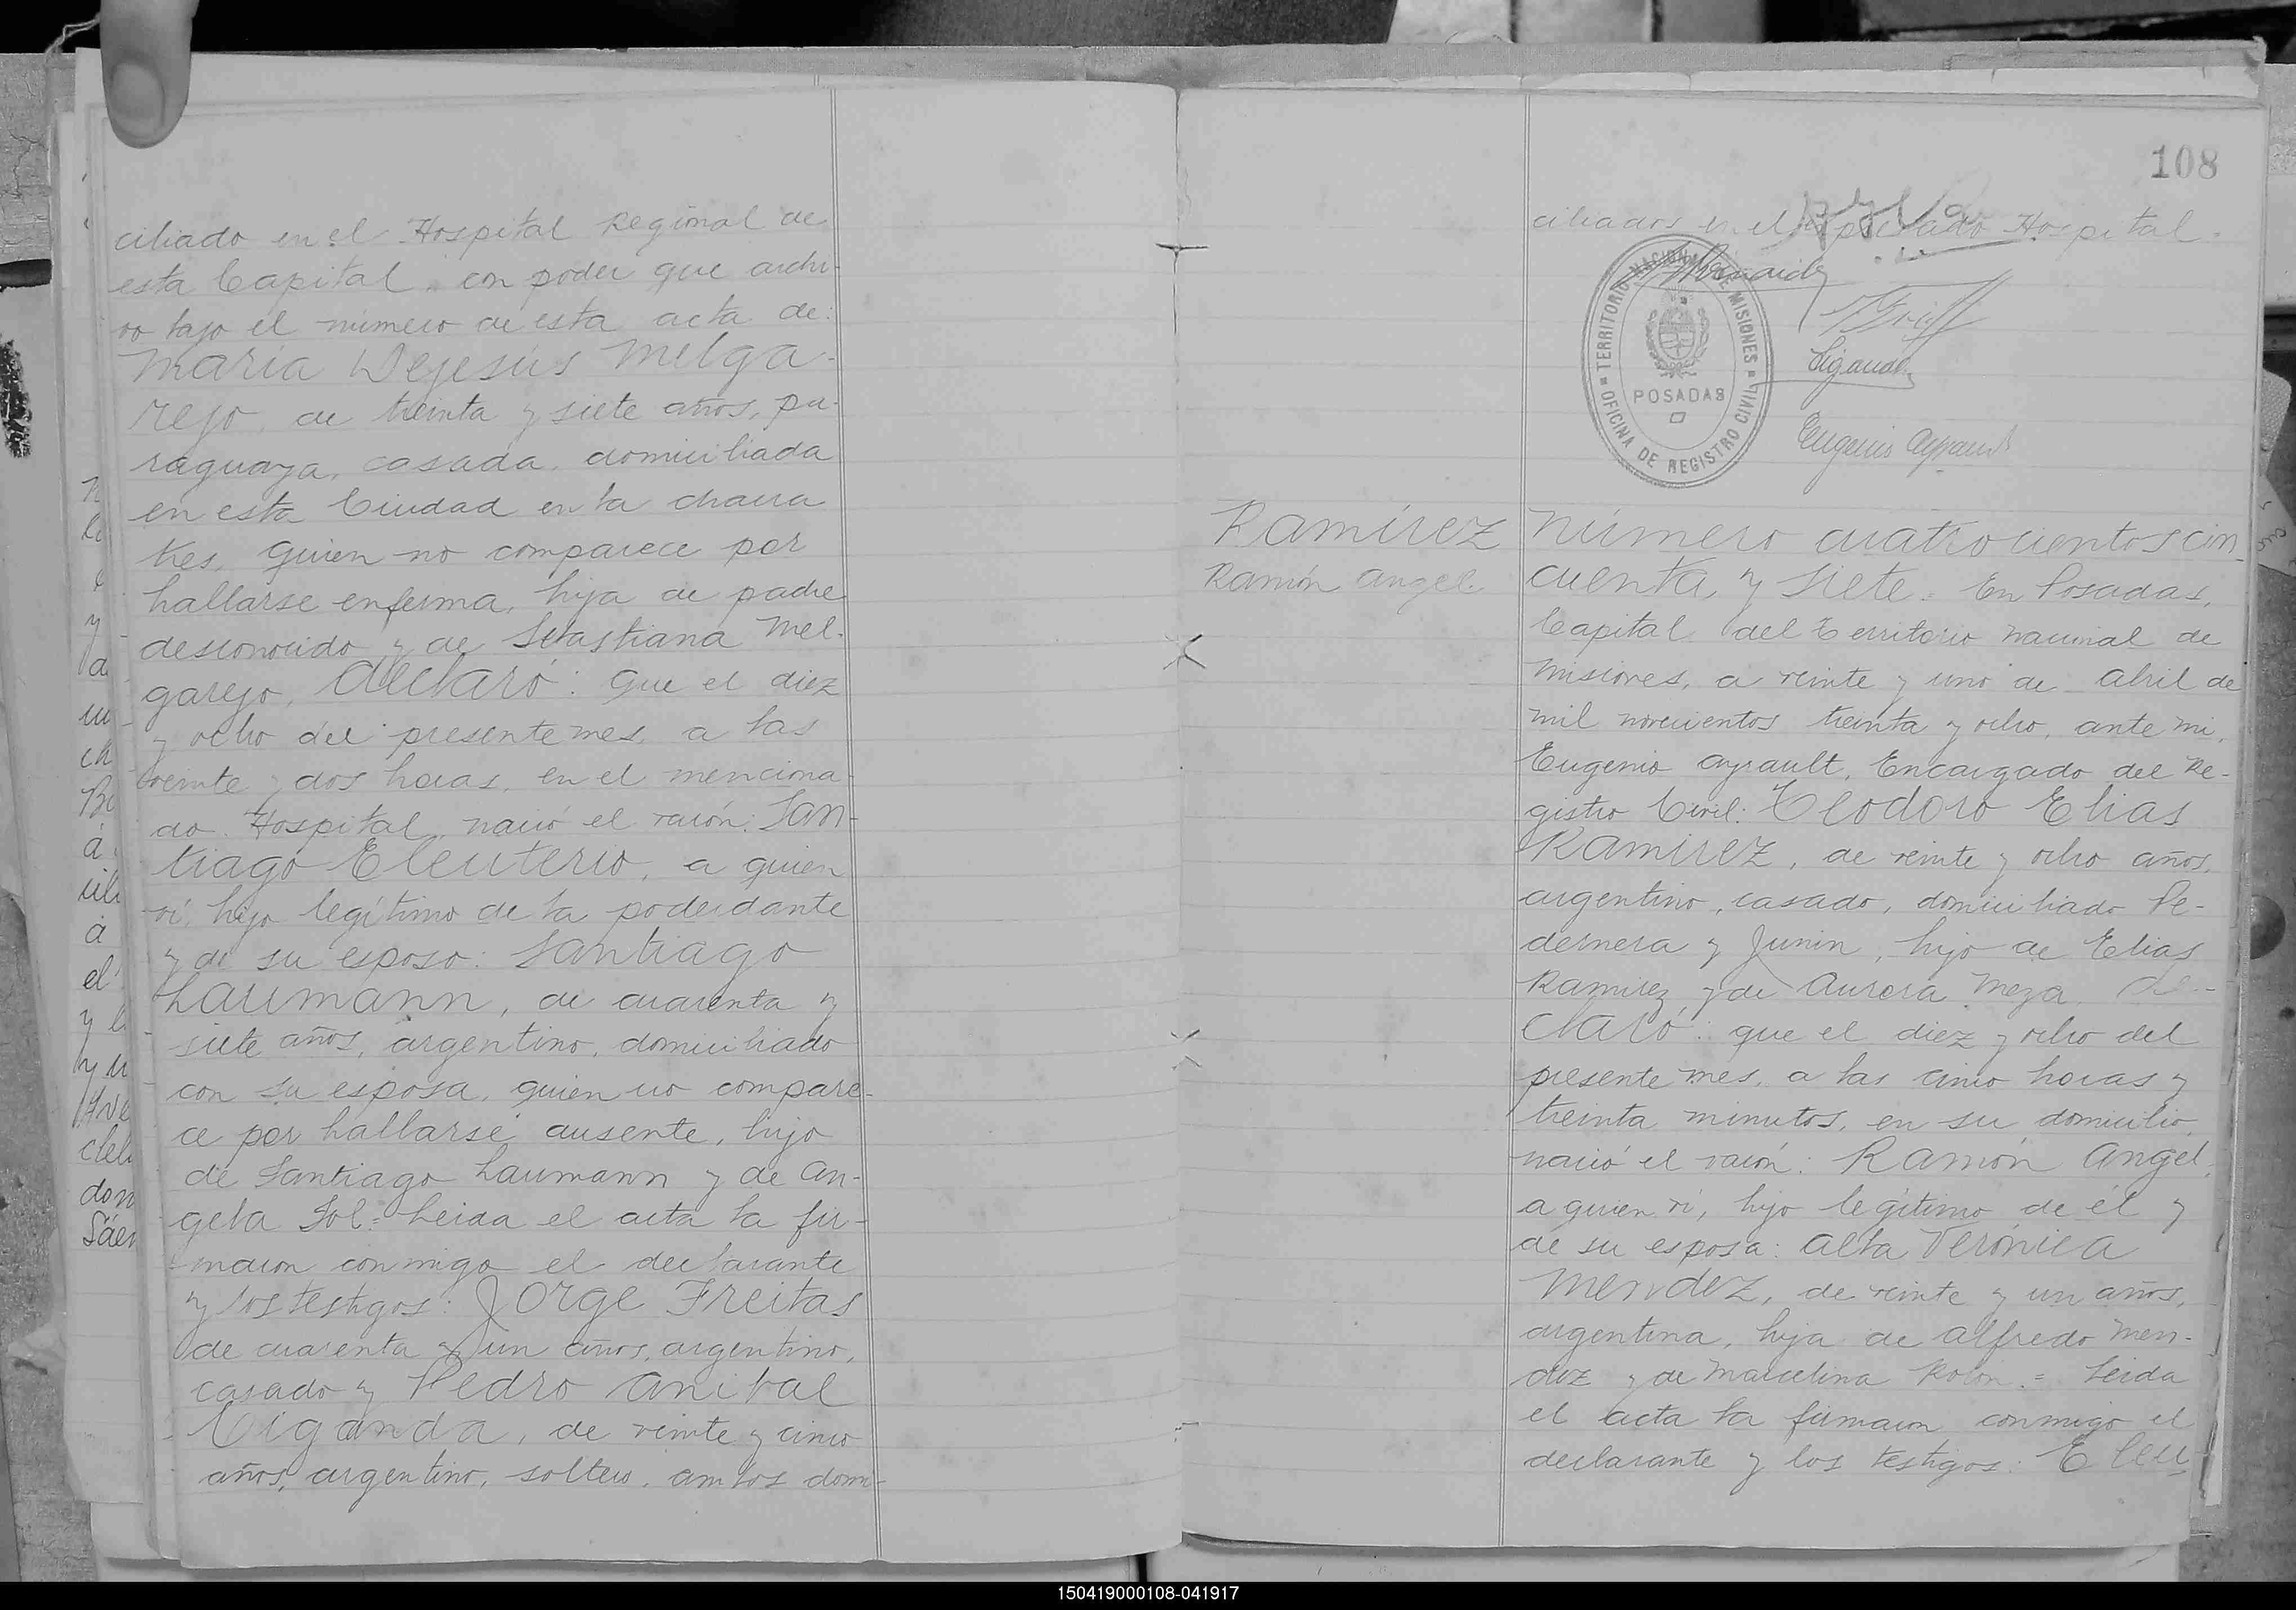 ciliado en el Hospital Regional de
esta Capital, con poder que archi-
vo bajo el número de esta acta de:
Maria Dejesús Melga-
rejo, de treinta y siete años, pa-
raguaya, casada, domiciliada
en esta Ciudad en la chacra
tres, quien no comparece por
hallarse enferma, hija de padre
desconocido y de Sebastiana Mel-
garejo, declaró: que el diez
y ocho del presente mes, a las
veinte y dos horas, en el menciona-
do Hospital, nació el varón: San-
tiago Eleuterio, a quien
ví, hijo legítimo de la poderdante
y de su esposo: Santiago
Laumann, de cuarenta y
siete años, argentino, domiciliado
con su esposa, quien no compare-
ce por hallarse ausente, hijo
de Santiago Laumann y de An-
gela Sol.= Leida el acta la fir-
maron conmigo el declarante
y los testigos: Jorge Freitas
de cuarenta y un años, argentino,
casado y Pedro Anibal
Ciganda, de veinte y cinco
años, argentino, soltero, ambos domi-
108
ciliados en el Hospital.
TERRITORIO NACIONAL DE MISIONES
POSADAS
OFICINA DE REGISTRO CIVIL
Eugenio Ayrault
Ramírez
Ramón Angel
Número cuatrocientos cin-
cuenta y siete. En Posadas,
Capital del Territorio Nacional de
Misiones, a veinte y uno de Abril de
mil novecientos treinta y ocho, ante mi,
Eugenio Ayrault, Encargado del Re-
gistro Civil: Teodoro Elias
Ramirez, de veinte y ocho años,
argentino, casado, domiciliado Pe-
dernera y Junin, hijo de Elias
Ramirez y de Aurora Meza, de-
claró: que el diez y ocho del
presente mes, a las cinco horas y
treinta minutos, en su domicilio,
nació el varón: Ramón Angel,
a quien ví, hijo legítimo de él y
de su esposa: Alba Verónica
Mendez, de veinte y un años,
argentina, hija de Alfredo Men-
dez y de Marcelina Rolón.= Leida
el acta la firmaron conmigo el
declarante y los testigos: Eleu-
150419000108-041917